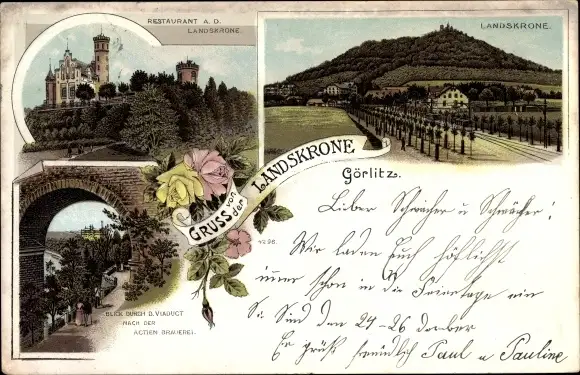 RESTAURANT A. D.
LANDSKRONE.
LANDSKRONE.
GRUSS von der LANDSKRONE
Görlitz.
4296.
BLICK DURCH D. VIADUCT
NACH DER
ACTIEN BRAUEREI.
Lieber Schwacher u Schwächer!
Wir laden Euch höflichst
schon in die Feiertage ein
Sie sind den 24-26
Es grüßt freundlich Paul u Pauline